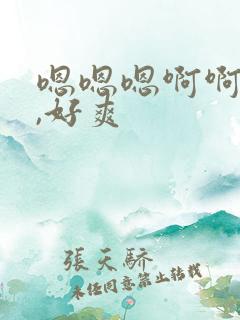 嗯嗯嗯啊啊
,好爽
張天驕
未任同意禁止转载